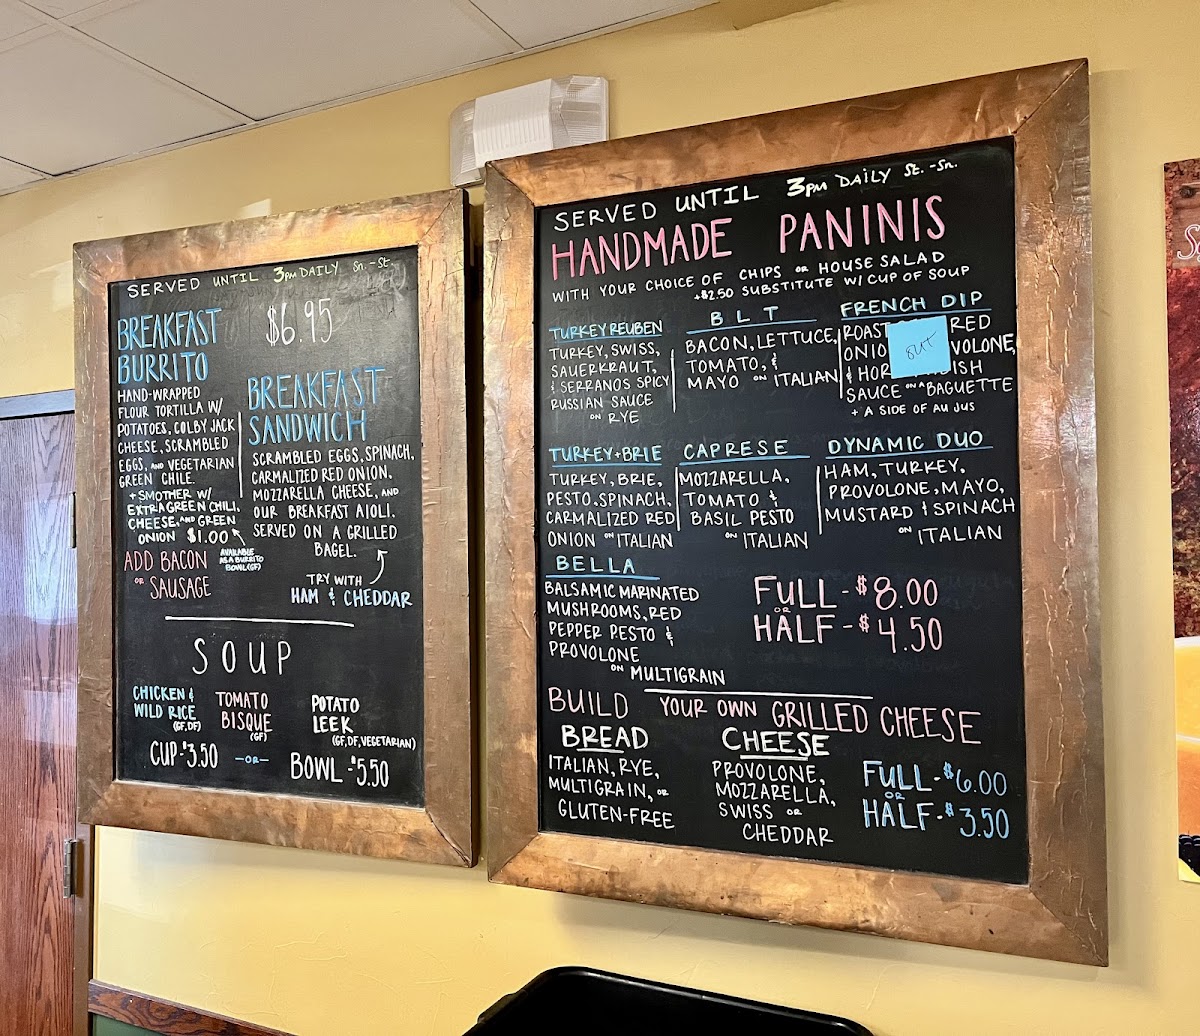 SERVED UNTIL 3PM DAILY Sn.-St.
BREAKFAST
BURRITO
$6.95
HAND-WRAPPED
FLOUR TORTILLA W/
POTATOES, COLBY JACK
CHEESE, SCRAMBLED
EGGS, AND VEGETARIAN
GREEN CHILE.
+ SMOTHER W/
EXTRA GREEN CHILI,
CHEESE, AND GREEN
ONION $1.00
AVAILABLE
AS A BURRITO
BOWL (GF)
ADD BACON
OR SAUSAGE
BREAKFAST
SANDWICH
SCRAMBLED EGGS, SPINACH,
CARMALIZED RED ONION,
MOZZARELLA CHEESE, AND
OUR BREAKFAST AIOLI.
SERVED ON A GRILLED
BAGEL.
TRY WITH
HAM & CHEDDAR
SOUP
CHICKEN &
WILD RICE
(GF, DF)
TOMATO
BISQUE
(GF)
POTATO
LEEK
(GF, DF, VEGETARIAN)
CUP-$3.50 -OR- BOWL-$5.50
SERVED UNTIL 3PM DAILY St.-Sn.
HANDMADE PANINIS
WITH YOUR CHOICE OF CHIPS OR HOUSE SALAD
+$2.50 SUBSTITUTE W/ CUP OF SOUP
TURKEY REUBEN
TURKEY, SWISS,
SAUERKRAUT,
& SERRANOS SPICY
RUSSIAN SAUCE
ON RYE
BLT
BACON, LETTUCE,
TOMATO, &
MAYO ON ITALIAN
FRENCH DIP
ROAST RED
ONIO VOLONE,
& HOR DISH
SAUCE ON A BAGUETTE
+ A SIDE OF AU JUS
OUT
TURKEY+BRIE
TURKEY, BRIE,
PESTO, SPINACH,
CARMALIZED RED
ONION ON ITALIAN
CAPRESE
MOZZARELLA,
TOMATO &
BASIL PESTO
ON ITALIAN
DYNAMIC DUO
HAM, TURKEY,
PROVOLONE, MAYO,
MUSTARD & SPINACH
ON ITALIAN
BELLA
BALSAMIC MARINATED
MUSHROOMS, RED
PEPPER PESTO &
PROVOLONE
ON MULTIGRAIN
FULL-$8.00
OR
HALF-$4.50
BUILD YOUR OWN GRILLED CHEESE
BREAD
ITALIAN, RYE,
MULTIGRAIN, OR
GLUTEN-FREE
CHEESE
PROVOLONE,
MOZZARELLA,
SWISS OR
CHEDDAR
FULL-$6.00
OR
HALF-$3.50